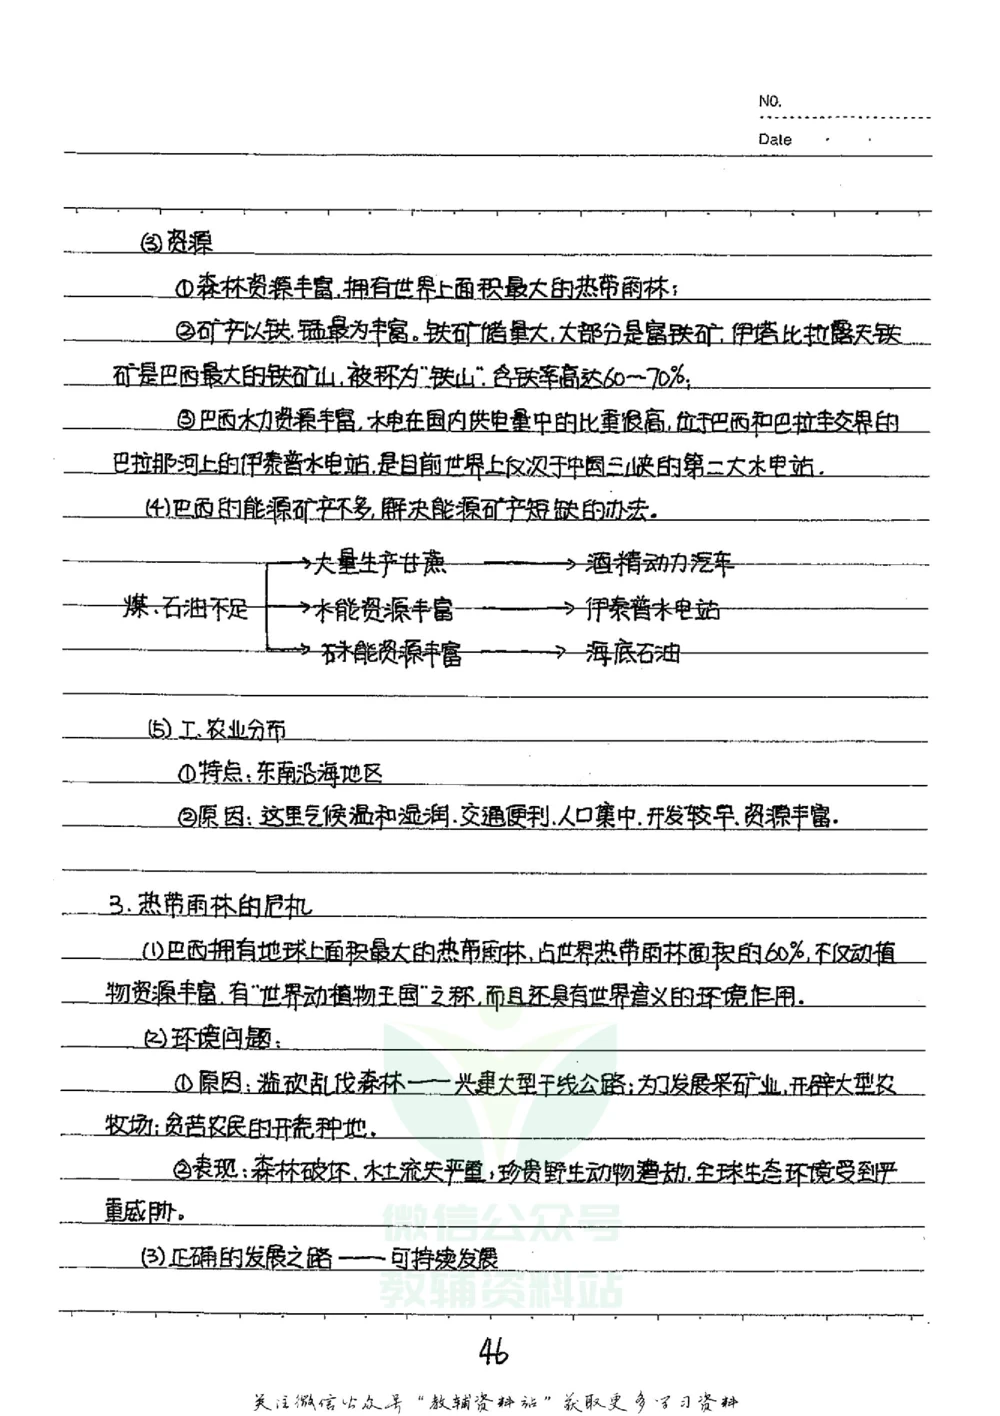 NO.
Date
(3)资源
①森林资源丰富,拥有世界上面积最大的热带雨林;
②矿产以铁、锰最为丰富。铁矿储量大,大部分是富铁矿,伊塔比拉露天铁
矿是巴西最大的铁矿山,被称为"铁山",含铁率高达60—70%;
③巴西水力资源丰富,水电在国内供电量中的比重很高,位于巴西和巴拉圭交界的
巴拉那河上的伊泰普水电站,是目前世界上仅次于中国三峡的第二大水电站.
(4)巴西的能源矿产不多,解决能源矿产短缺的办法。
→大量生产甘蔗 → 酒精动力汽车
煤、石油不足 →水能资源丰富 → 伊泰普水电站
→ 能资源丰富 → 海底石油
(5)工、农业分布
①特点:东南沿海地区
②原因:这里气候温和湿润.交通便利.人口集中.开发较早、资源丰富.
3.热带雨林的危机
(1)巴西拥有地球上面积最大的热带雨林,占世界热带雨林面积的60%,不仅动植
物资源丰富,有"世界动植物王国"之称,而且还具有世界意义的环境作用.
(2)环境问题:
①原因:滥砍乱伐森林——兴建大型干线公路;为了发展采矿业,开辟大型农
牧场;贫苦农民的开荒种地.
②表现:森林破坏、水土流失严重;珍贵野生动物遭劫.全球生态环境受到严
重威胁。
(3)正确的发展之路——可持续发展
微信公众号
教辅资料站
46
关注微信公众号"教辅资料站"获取更多学习资料